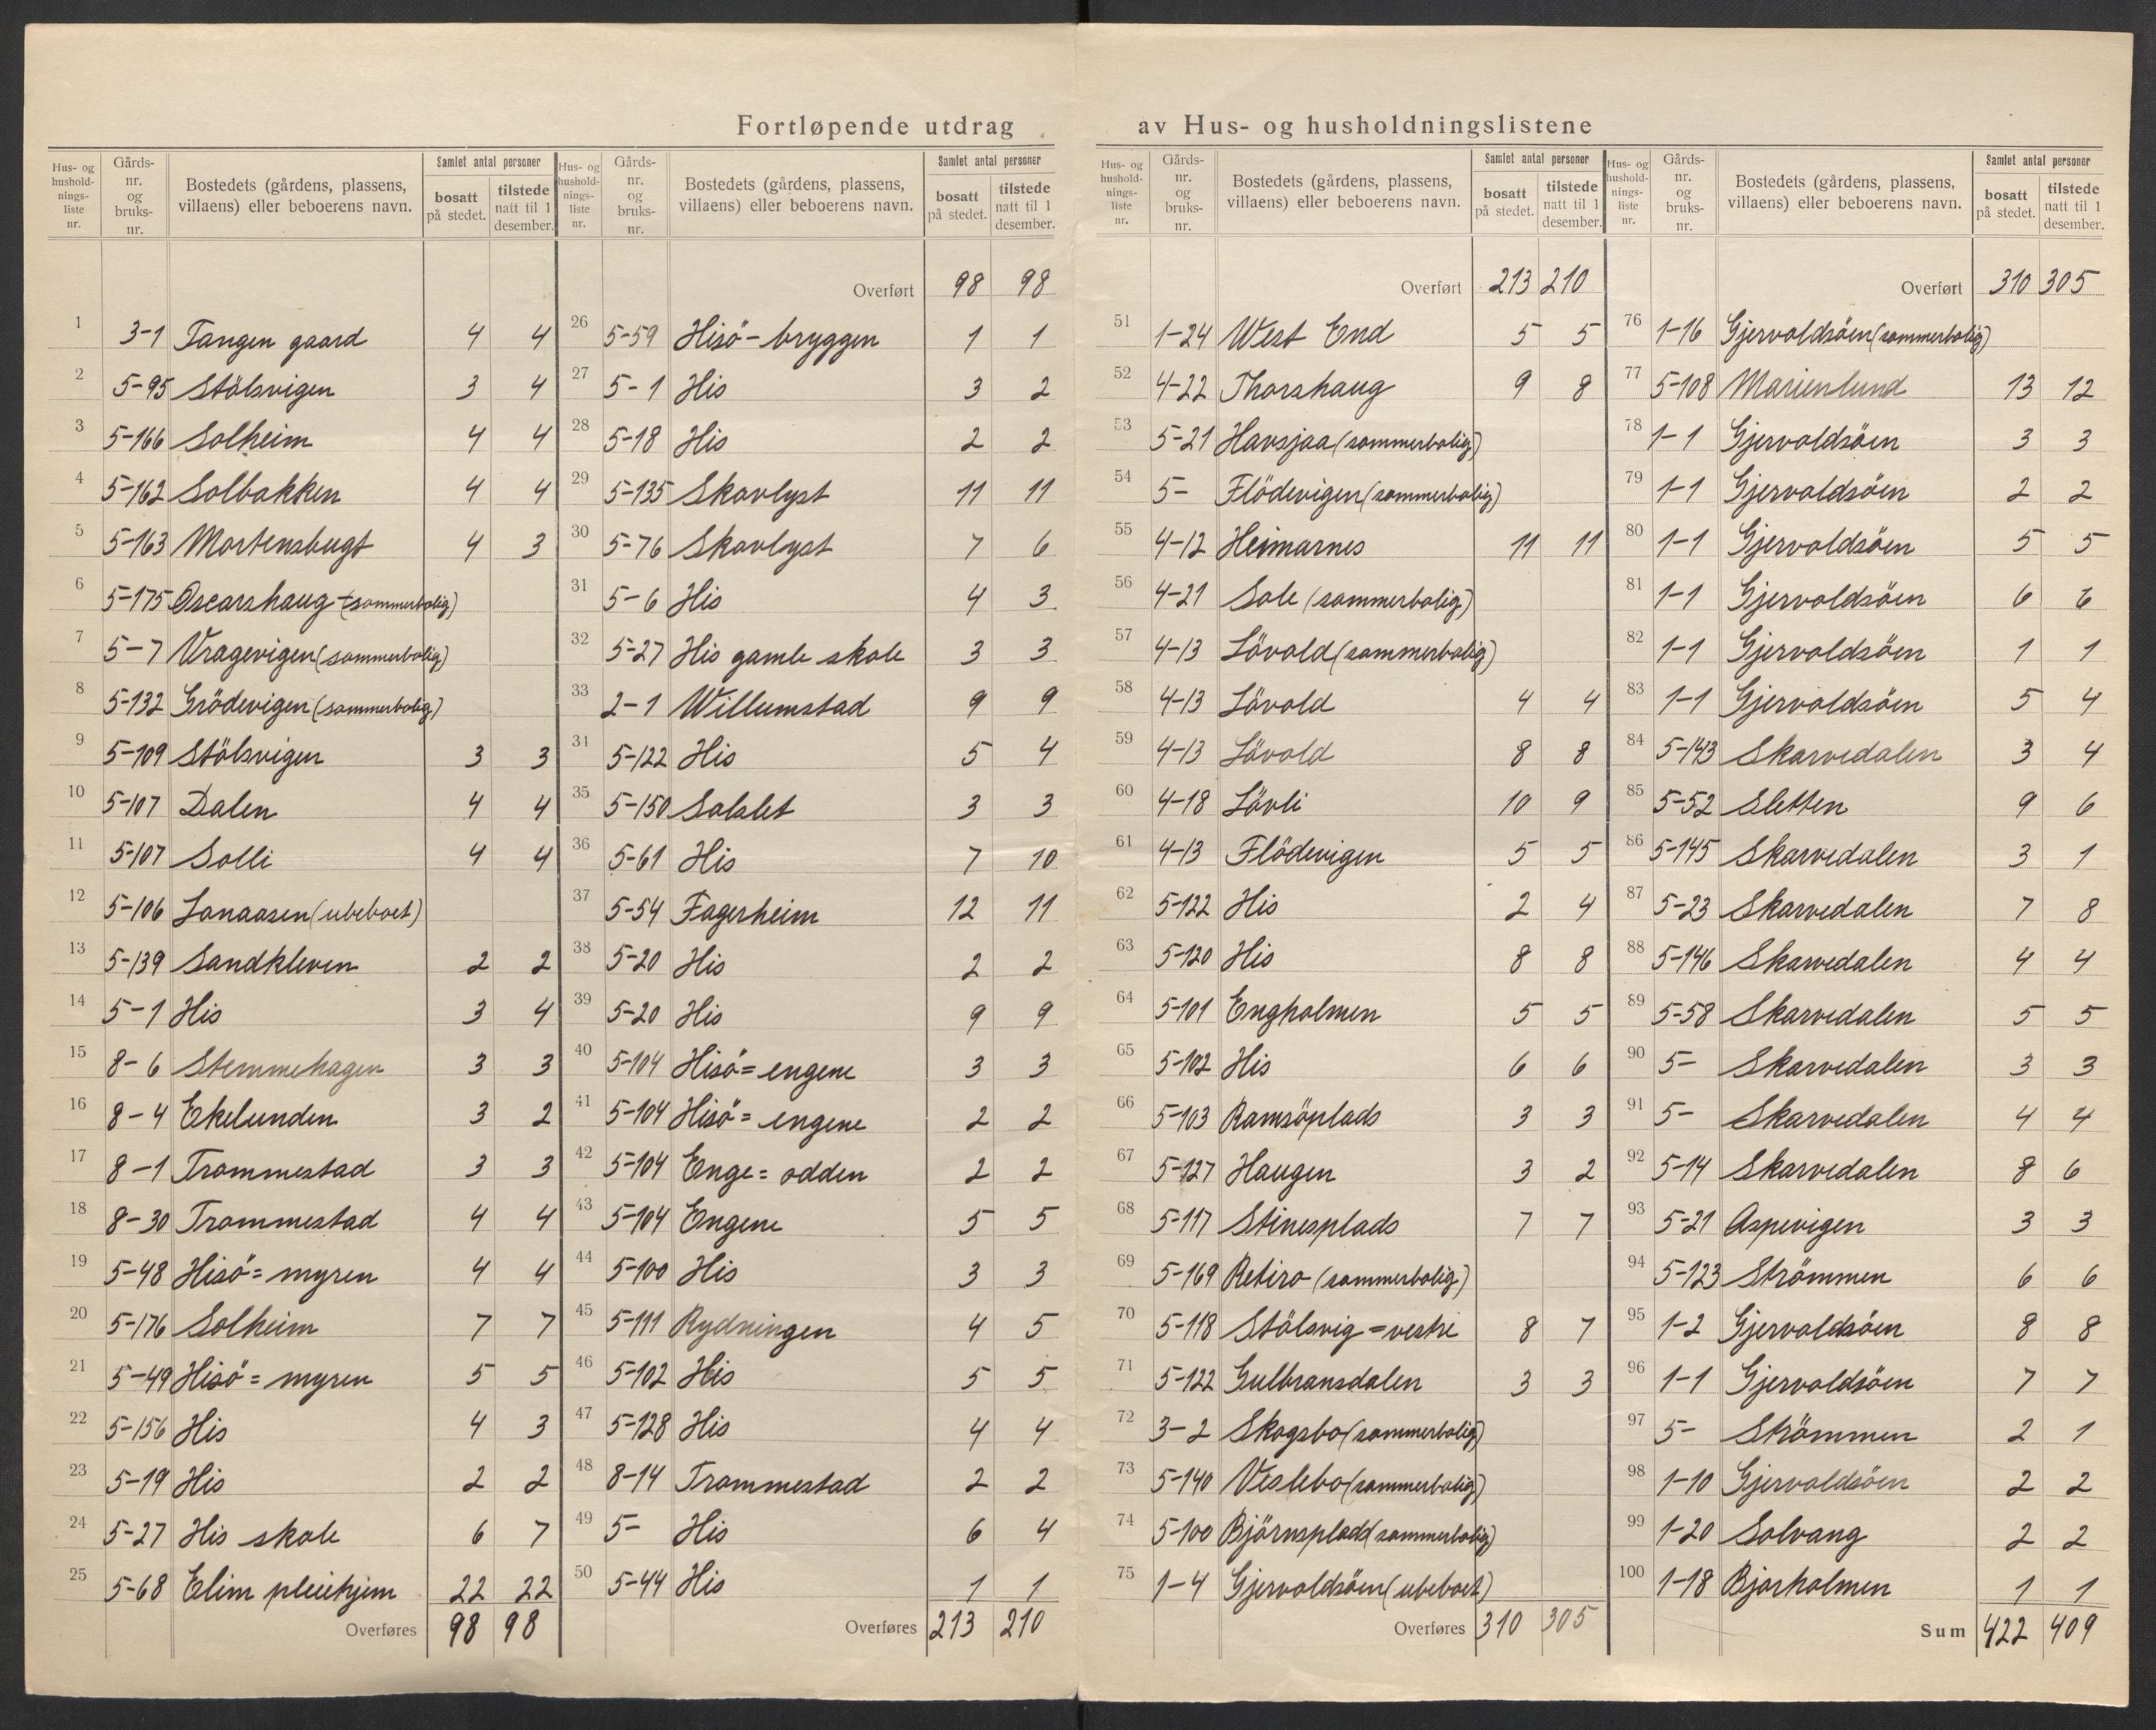 Fortløpende utdrag av Hus- og husholdningslistene
Hus- og husholdningsliste nr. | Gårdsnr. og bruksnr. | Bostedets (gårdens, plassens, villaens) eller beboerens navn. | Samlet antal personer: bosatt på stedet. | tilstede natt til 1 desember.
1 3-1 Tangen gaard 4 4
2 5-95 Stölsvigen 3 4
3 5-166 Solheim 4 4
4 5-162 Solbakken 4 4
5 5-163 Mortensbugt 4 3
6 5-175 Oscarshaug (sommerbolig)
7 5-7 Vragevigen (sommerbolig)
8 5-132 Grödevigen (sommerbolig)
9 5-109 Stölsvigen 3 3
10 5-107 Dalen 4 4
11 5-107 Solli 4 4
12 5-106 Lanaasen (ubeboet)
13 5-139 Sandkleven 2 2
14 5-1 His 3 4
15 8-6 Stemmehagen 3 3
16 8-4 Ekelunden 3 2
17 8-1 Trommestad 3 3
18 8-30 Trommestad 4 4
19 5-48 Hisö=myren 4 4
20 5-176 Solheim 7 7
21 5-49 Hisö=myren 5 5
22 5-156 His 4 3
23 5-19 His 2 2
24 5-27 His skole 6 7
25 5-68 Elim pleiehjem 22 22
Overføres 98 98
Hus- og husholdningsliste nr. | Gårdsnr. og bruksnr. | Bostedets (gårdens, plassens, villaens) eller beboerens navn. | Samlet antal personer: bosatt på stedet. | tilstede natt til 1 desember.
Overført 98 98
26 5-59 Hisö-bryggen 1 1
27 5-1 His 3 2
28 5-18 His 2 2
29 5-135 Skovlyst 11 11
30 5-76 Skovlyst 7 6
31 5-6 His 4 3
32 5-27 His gamle skole 3 3
33 2-1 Willumstad 9 9
34 5-122 His 5 4
35 5-150 Solslet 3 3
36 5-61 His 7 10
37 5-54 Fagerheim 12 11
38 5-20 His 2 2
39 5-20 His 9 9
40 5-104 Hisö=engene 3 3
41 5-104 Hisö=engene 2 2
42 5-104 Enge=odden 2 2
43 5-104 Engene 5 5
44 5-100 His 3 3
45 5-111 Rydningen 4 5
46 5-102 His 5 5
47 5-128 His 4 4
48 8-14 Trommestad 2 2
49 5- His 6 4
50 5-44 His 1 1
Overføres 213 210
Hus- og husholdningsliste nr. | Gårdsnr. og bruksnr. | Bostedets (gårdens, plassens, villaens) eller beboerens navn. | Samlet antal personer: bosatt på stedet. | tilstede natt til 1 desember.
Overført 213 210
51 1-24 West End 5 5
52 4-22 Thorshaug 9 8
53 5-21 Havsjaa (sommerbolig)
54 5- Flödevigen (sommerbolig)
55 4-12 Heimarnes 11 11
56 4-21 Sole (sommerbolig)
57 4-13 Lövold (sommerbolig)
58 4-13 Lövold 4 4
59 4-13 Lövold 8 8
60 4-18 Lövli 10 9
61 4-13 Flödevigen 5 5
62 5-122 His 2 4
63 5-120 His 8 8
64 5-101 Engholmen 5 5
65 5-102 His 6 6
66 5-103 Ramsöplads 3 3
67 5-127 Haugen 3 2
68 5-117 Stinesplads 7 7
69 5-169 Retiro (sommerbolig)
70 5-118 Stölsvig=vestre 8 7
71 5-122 Gulbransdalen 3 3
72 3-2 Skogsbo (sommerbolig)
73 5-140 Veslebo (sommerbolig)
74 5-100 Björnsplads (sommerbolig)
75 1-4 Gjervoldsöen (ubeboet)
Overføres 310 305
Hus- og husholdningsliste nr. | Gårdsnr. og bruksnr. | Bostedets (gårdens, plassens, villaens) eller beboerens navn. | Samlet antal personer: bosatt på stedet. | tilstede natt til 1 desember.
Overført 310 305
76 1-16 Gjervoldsöen (sommerbolig)
77 5-108 Marienlund 13 12
78 1-1 Gjervoldsöen 3 3
79 1-1 Gjervoldsöen 2 2
80 1-1 Gjervoldsöen 5 5
81 1-1 Gjervoldsöen 6 6
82 1-1 Gjervoldsöen 1 1
83 1-1 Gjervoldsöen 5 4
84 5-143 Skarvedalen 3 4
85 5-52 Sletten 9 6
86 5-145 Skarvedalen 3 1
87 5-23 Skarvedalen 7 8
88 5-146 Skarvedalen 4 4
89 5-58 Skarvedalen 5 5
90 5- Skarvedalen 3 3
91 5- Skarvedalen 4 4
92 5-14 Skarvedalen 8 6
93 5-21 Aspevigen 3 3
94 5-123 Strömmen 6 6
95 1-2 Gjervoldsöen 8 8
96 1-1 Gjervoldsöen 7 7
97 5- Strömmen 2 1
98 1-10 Gjervoldsöen 2 2
99 1-20 Solvang 2 2
100 1-18 Bjorholmen 1 1
Sum 422 409